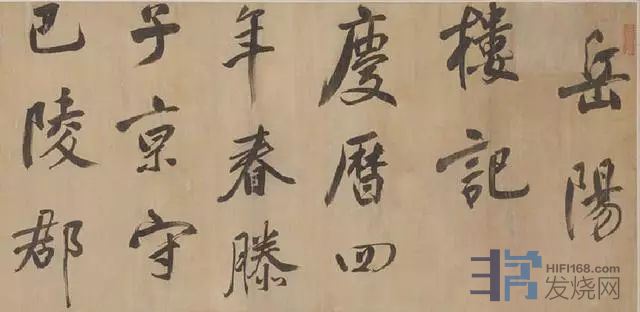 岳陽
樓記
慶曆四
年春滕
子京守
巴陵郡
HIFI168.com
发烧网